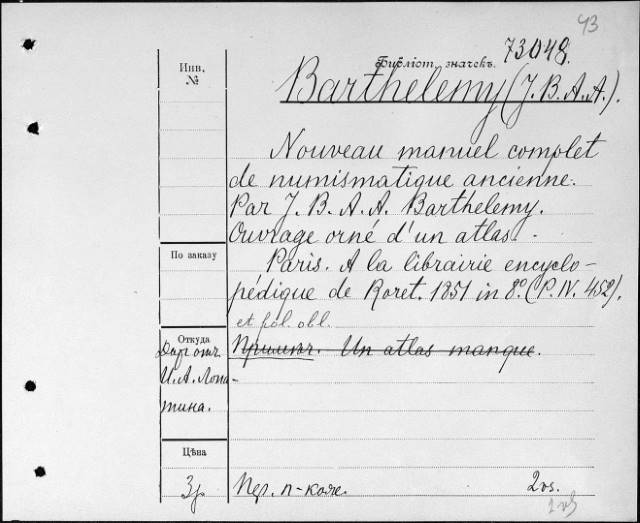 43
73048.
Библіот. значекъ.
Инв.
№
Barthelemy (J. B. A. A.).
Nouveau manuel complet
de numismatique ancienne.
Par J. B. A. A. Barthelemy.
Ouvrage orné d'un atlas.
По заказу
Paris. A la librairie encyclo-
pédique de Roret. 1851 in 8º. (P. IV. 452).
et fol. obl.
Откуда
Даръ отъ
И. А. Лопа-
тина.
Примѣч. Un atlas manque.
Цѣна
3р
Пер. п-кож.
2 vs.